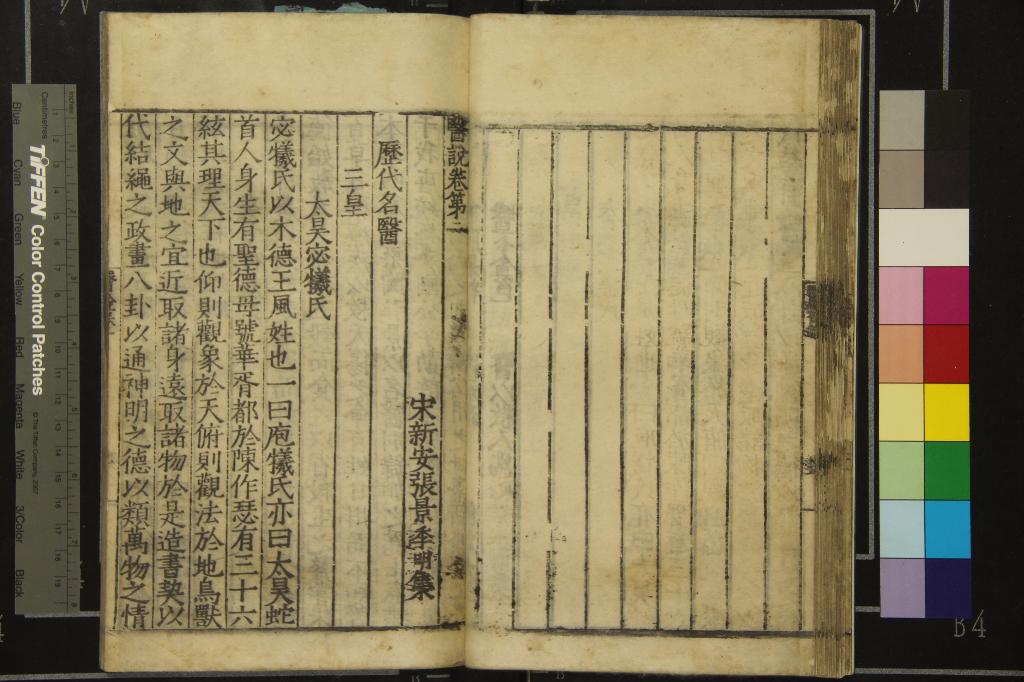 醫說卷第
宋新安張景季明集
歷代名醫
三皇
太昊宓犧氏
宓犧氏以木德王風姓也一曰庖犧氏亦曰太昊蛇
首人身生有聖德母號華胥都於陳作瑟有三十六
絃其理天下也仰則觀象於天俯則觀法於地鳥獸
之文與地之宜近取諸身遠取諸物於是造書契以
代結繩之政畫八卦以通神明之德以類萬物之情
TIFFEN Color Control Patches
© The Tiffen Company, 2007
Centimetres
Inches
Blue
Cyan
Green
Yellow
Red
Magenta
White
3/Color
Black
B4